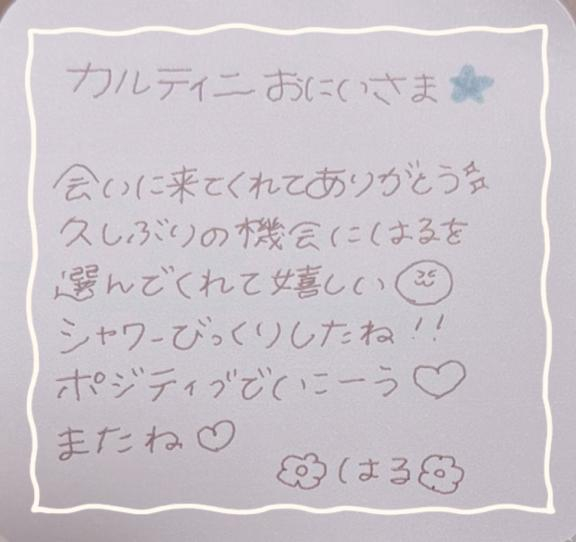 カルティニおにいさま
会いに来てくれてありがとう
久しぶりの機会にはるを
選んでくれて嬉しい
シャワーびっくりしたね!!
ポジティブでいこーう♡
またね♡
はる